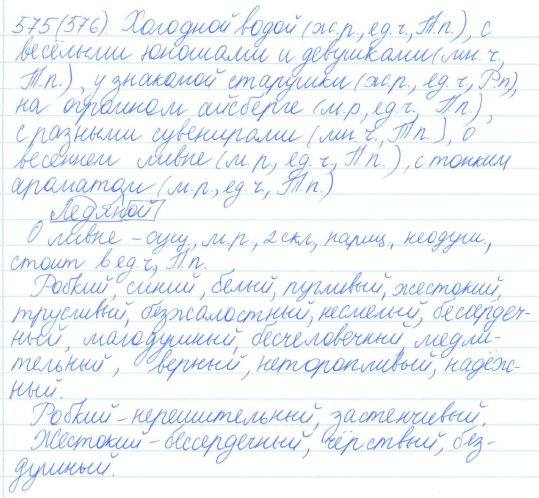 575(576) Холодной водой (ж.р., ед.ч., Т.п.), с
весёлыми юношами и девушками (мн.ч.,
Т.п.), у знакомой старушки (ж.р., ед.ч, Р.п),
на огромном айсберге (м.р, ед.ч, П.п),
с разными сувенирами (мн.ч., Т.п.), о
весеннем ливне (м.р, ед.ч, П.п.), с тонким
ароматом (м.р, ед.ч, Т.п.)
Ледяной
О ливне – сущ., м.р, 2скл, нариц., неодуш.,
стоит в ед.ч, П.п.
Робкий, синий, белый, пугливый, жестокий,
трусливый, безжалостный, несмелый, бессердеч-
ный, малодушный, бесчеловечный, медли-
тельный, верный, неторопливый, надёж-
ный.
Робкий – нерешительный, застенчивый.
Жестокий – бессердечный, чёрствый, без-
душный.